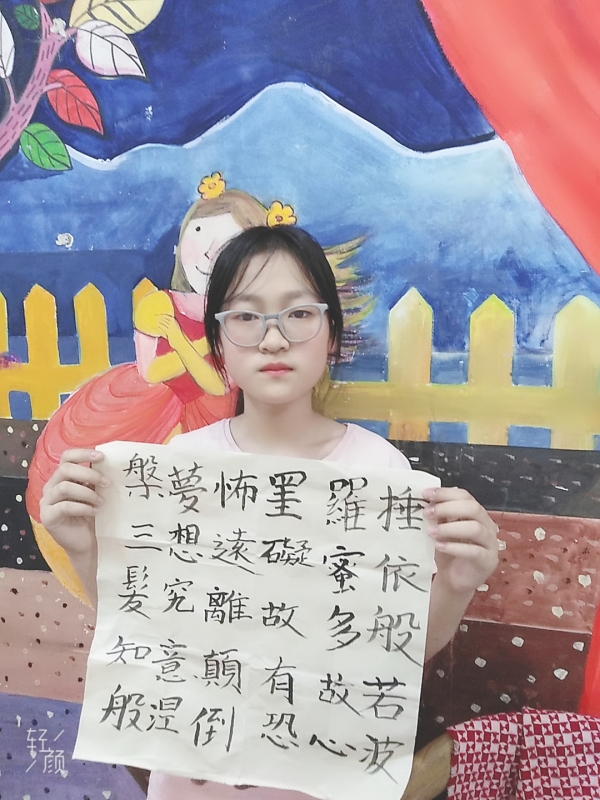 捶依般若波
羅蜜多故心
罣礙故有恐
怖遠離顛倒
夢想究意涅
槃三髮知般
轻颜